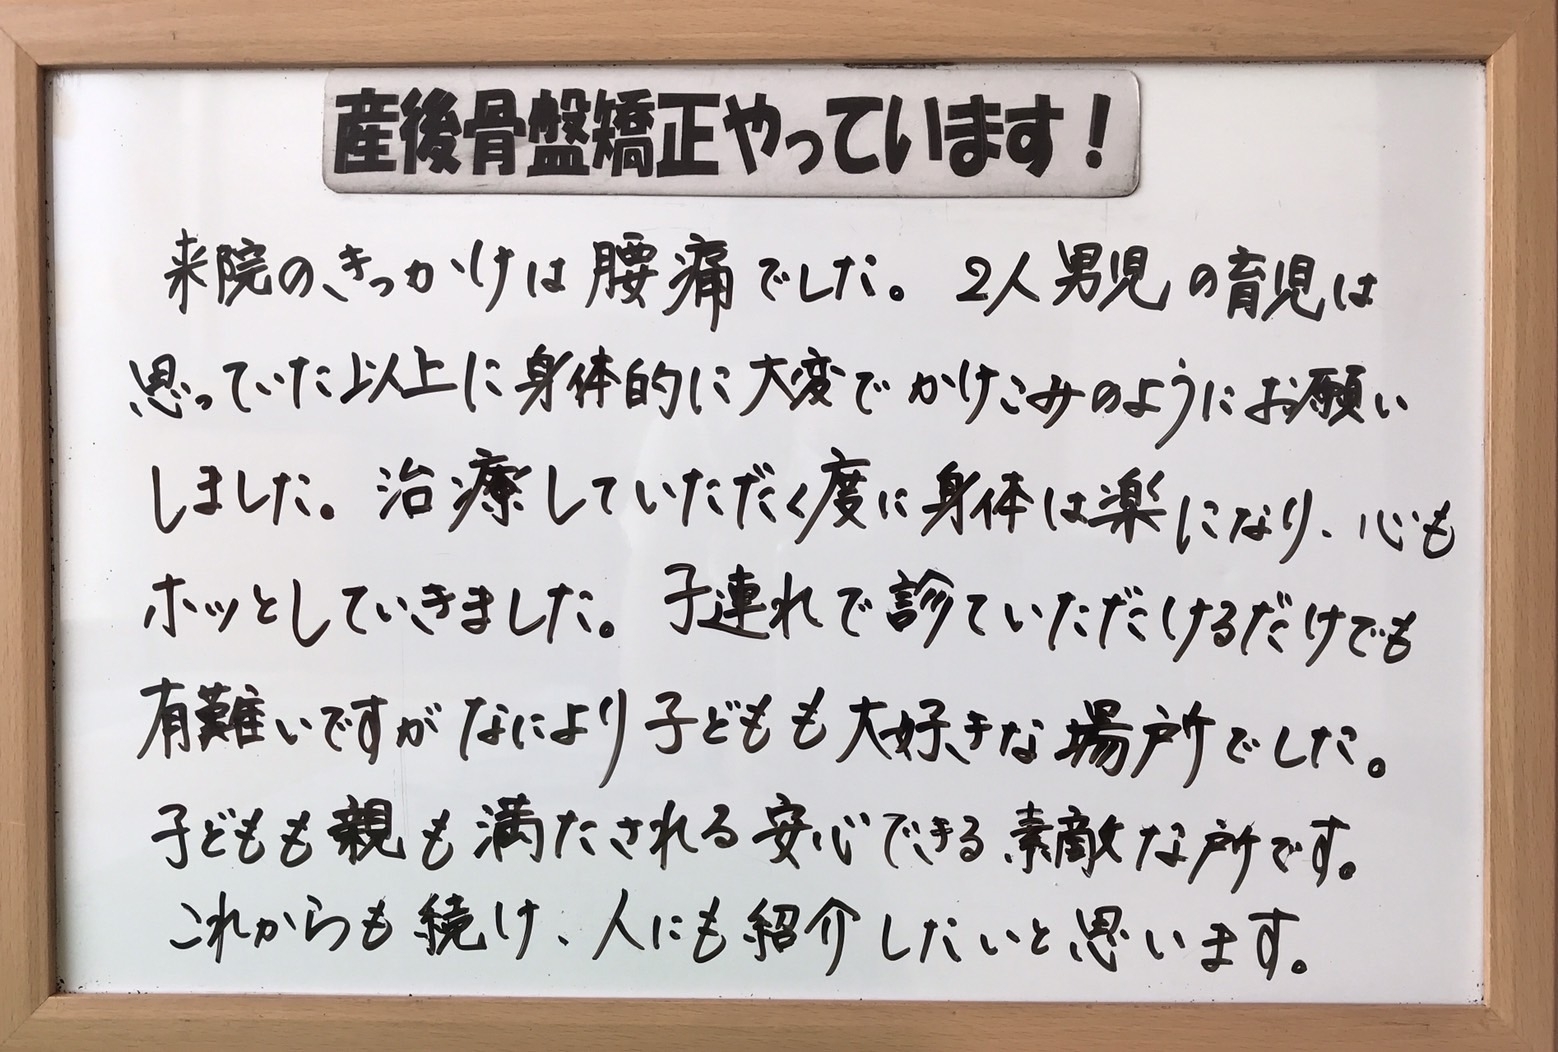 産後骨盤矯正やっています！
来院のきっかけは腰痛でした。2人男児の育児は
思っていた以上に身体的に大変でかけこみのようにお願い
しました。治療していただく度に身体は楽になり、心も
ホッとしていきました。子連れで診ていただけるだけでも
有難いですがなにより子どもも大好きな場所でした。
子どもも親も満たされる安心できる素敵な所です。
これからも続け、人にも紹介したいと思います。